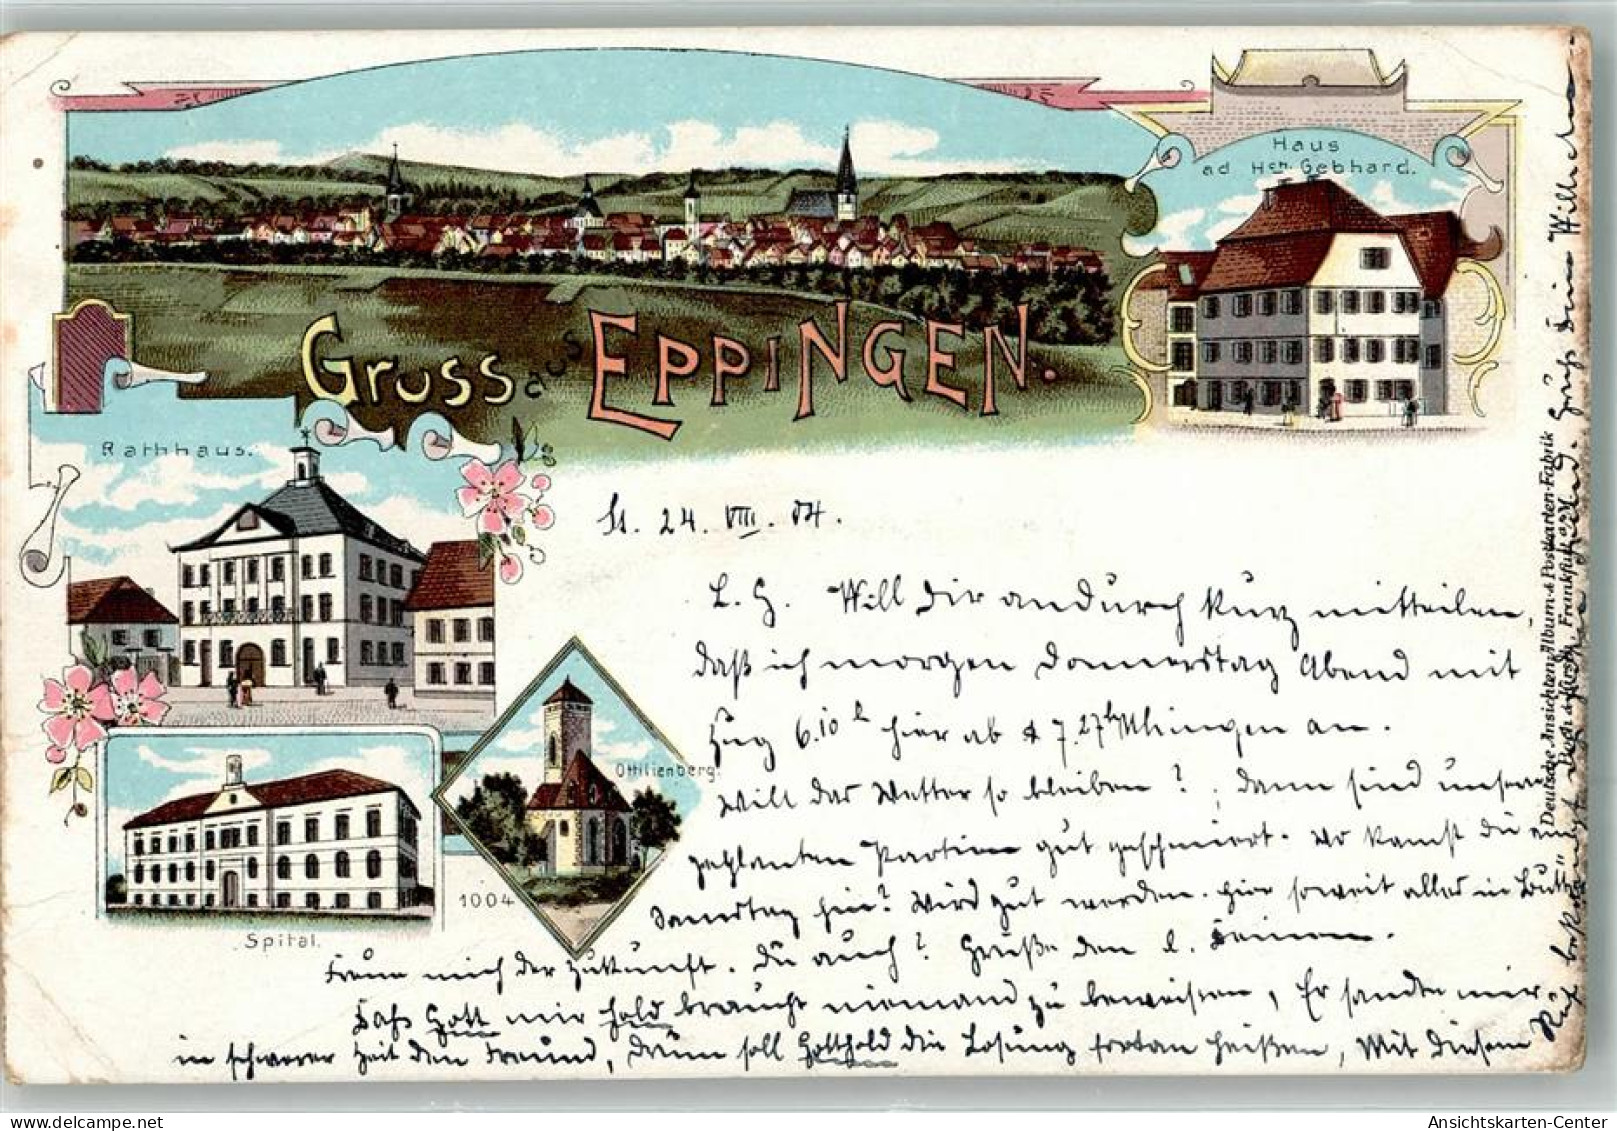 Haus
ad Hch. Gebhard.
Gruss aus EPPINGEN.
Rathhaus.
Ottilienberg.
1004
Spital.
Deutsche Ansichten-Album-& Postkarten-Fabrik
St. 24. VIII. 04.
L. G. Will dir andurch kurz mitteilen,
daß ich morgen Donnerstag Abend mit
Zug 6.10 hier ab & 7.27 an.
Will das Wetter so bleiben? Dann sind unsere
geplanten Partien gut geschmiert. Wo kamst du
Samstag hin? Wird gut werden. Hier soweit alles in Butter
Freue mich der Zukunft. Du auch? Grüße den l. Deinen.
Daß Gott mir hold braucht niemand zu beweisen, Er sandte mir
in schwerer Zeit den Freund, drum soll Gotthold die Losung fortan heißen, Mit diesem
Gruß dein
Ansichtskarten-Center